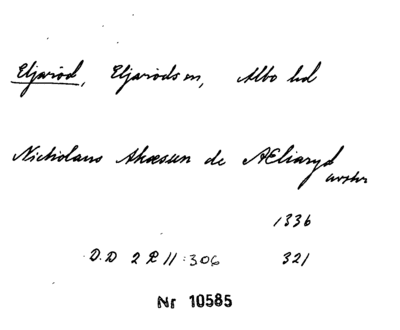 Eljaröd, Eljaröds sn, Albo hd
Nicholaus Akæsun de AEliaryd
1336
D.D 2 R II:306 321
Nr 10585